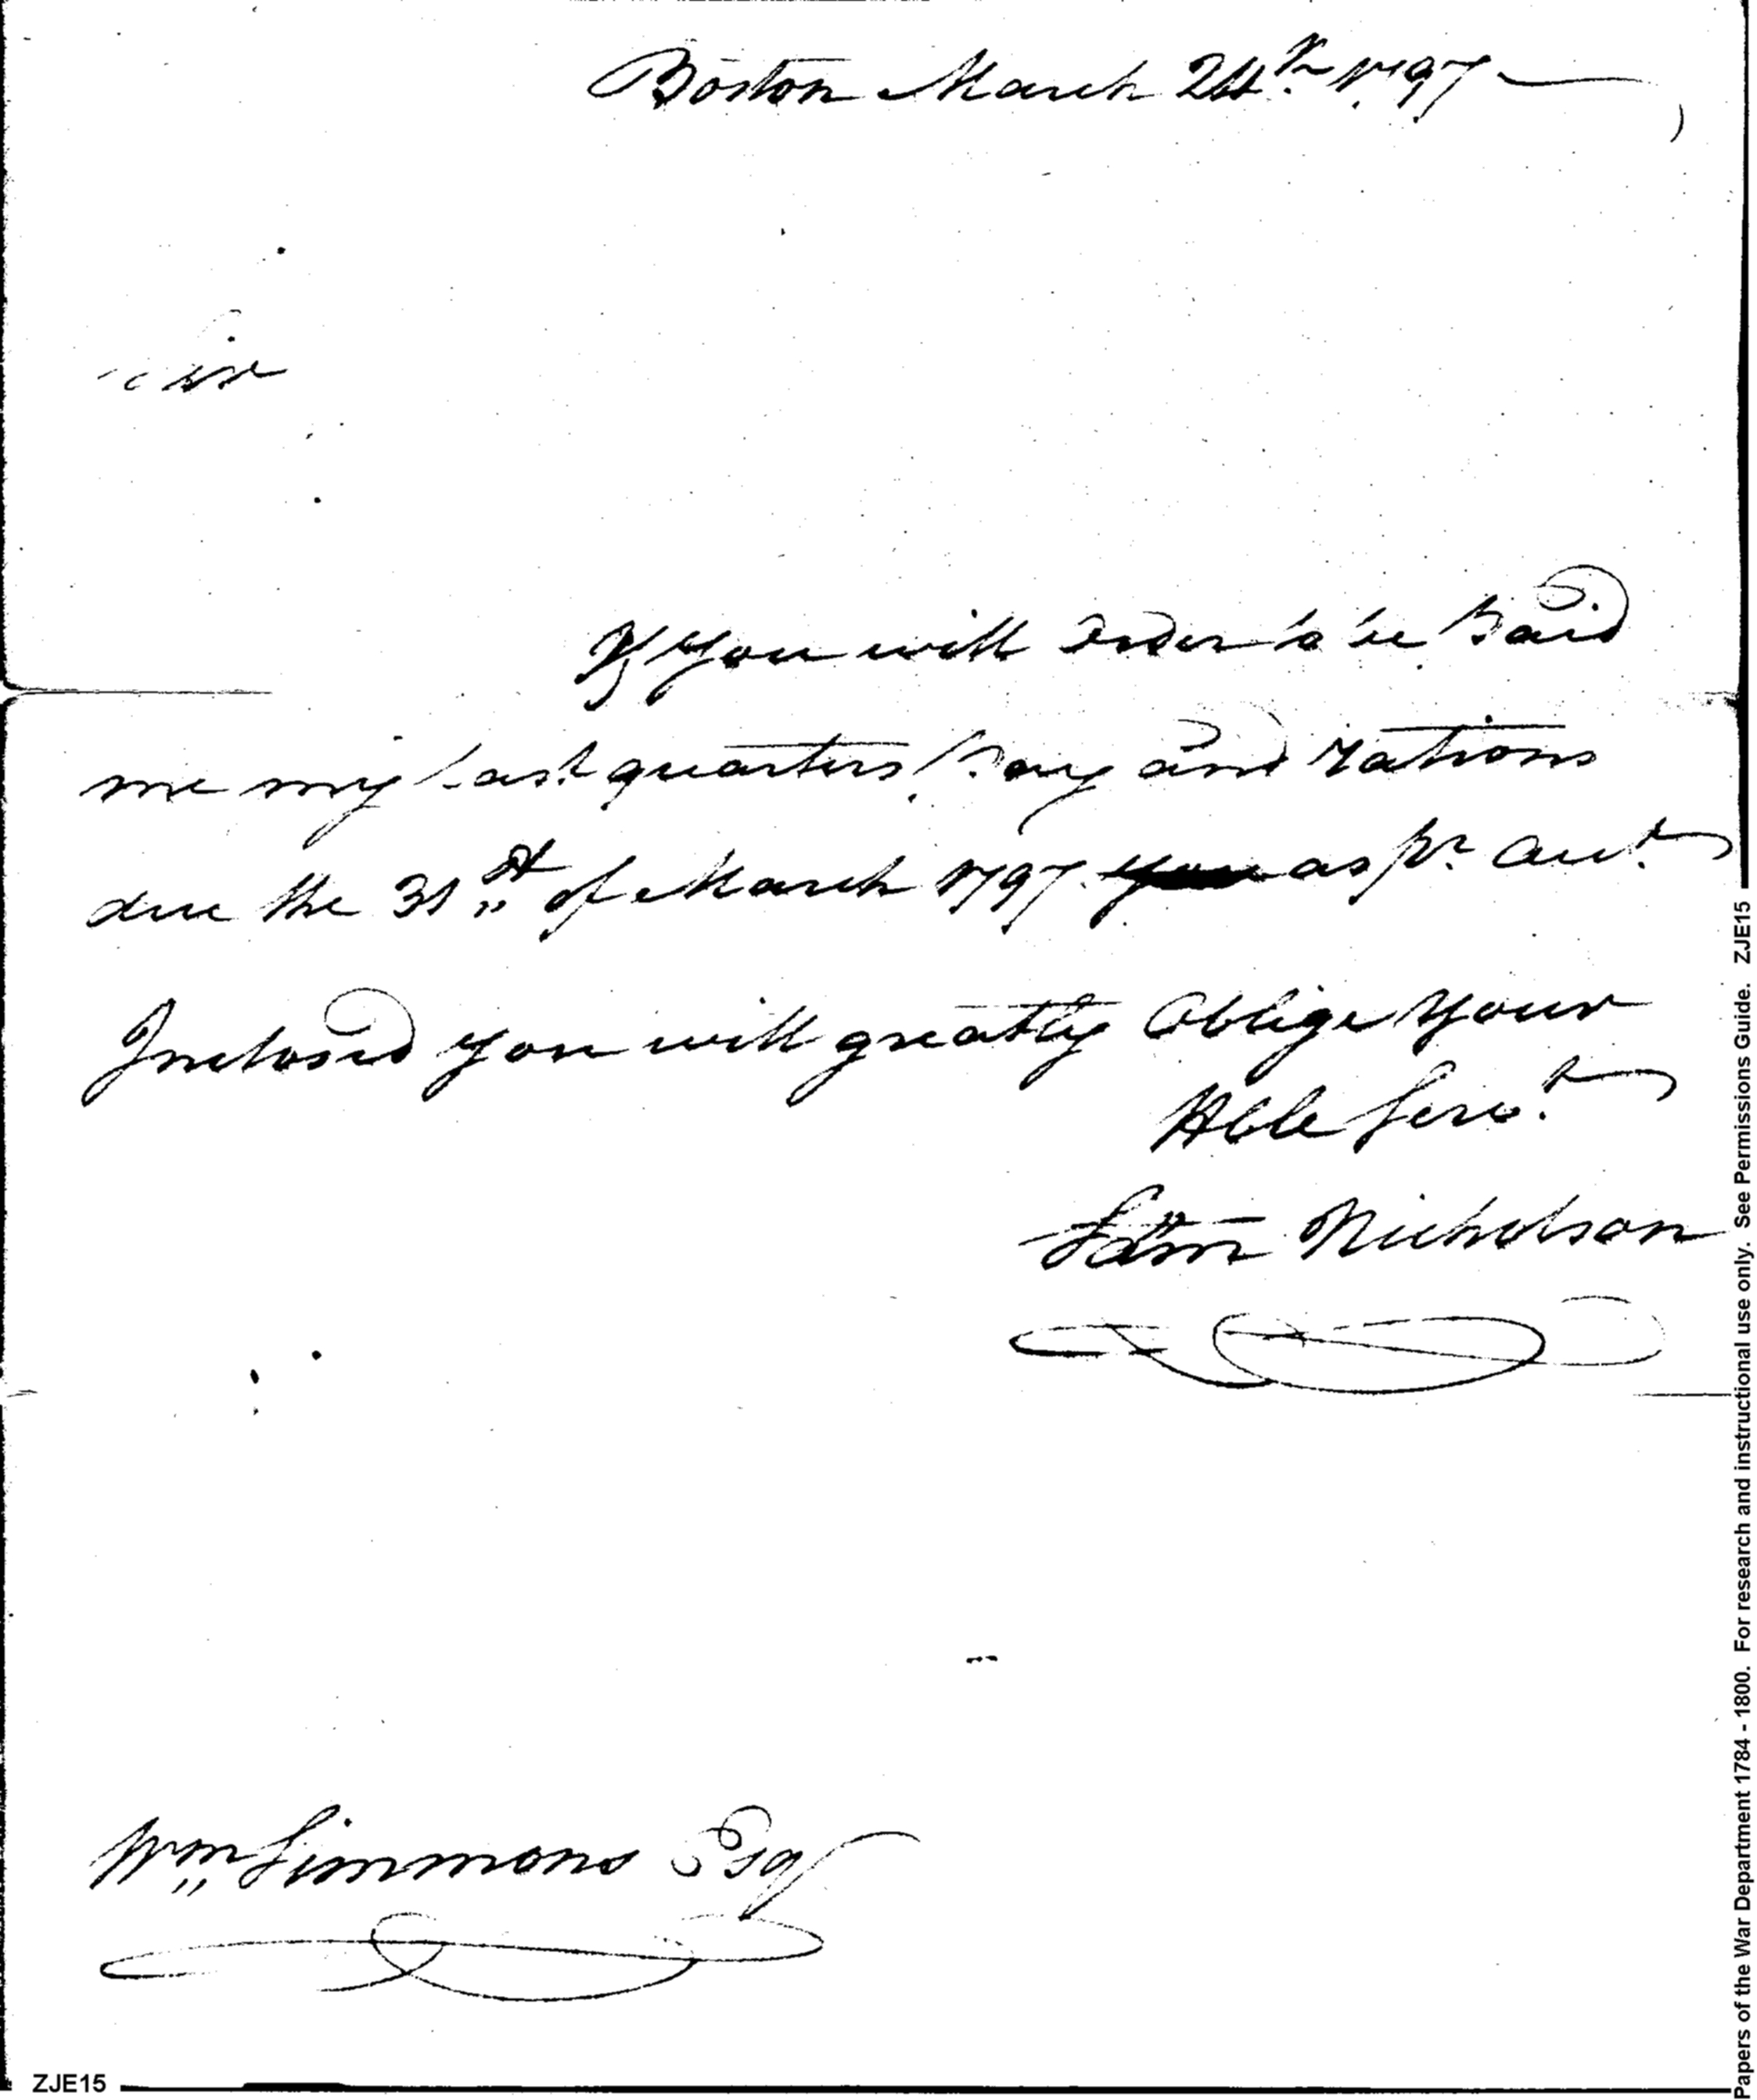 Boston March 24th. 1797
Sir
If you will order to be Paid
me my last quarters Pay and rations
due the 31st of March 1797. you as pr. Acct.
Inclosed you will greatly Oblige your
Hble Servt.
Sam Nicholson
Wm Simmons Esq
ZJE15
Papers of the War Department 1784 - 1800. For research and instructional use only. See Permissions Guide. ZJE15